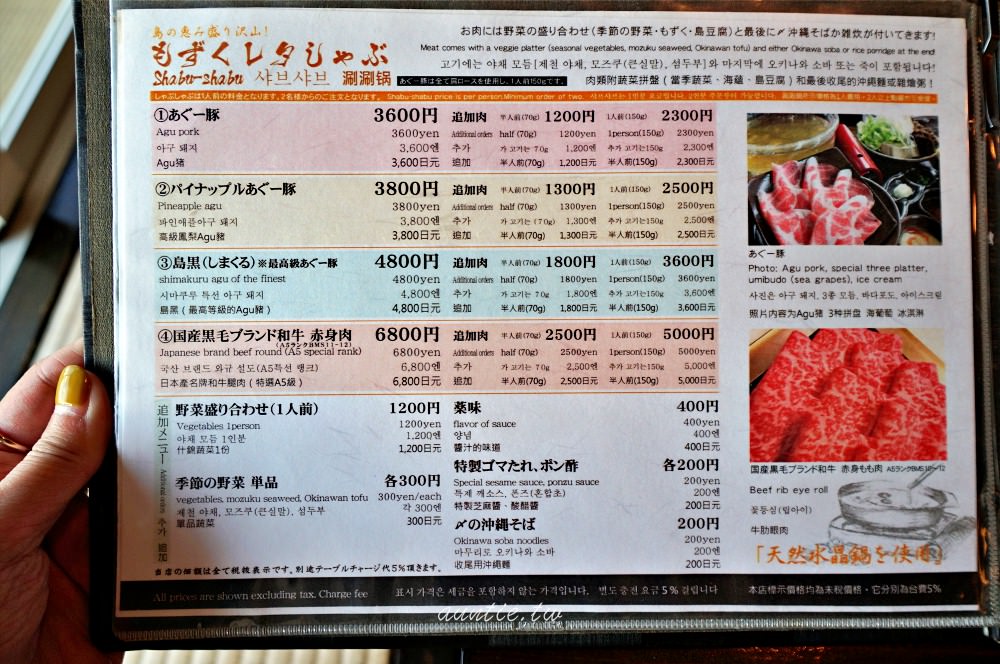 島の恵み盛り沢山!
もずくレタしゃぶ
Shabu-shabu 샤브샤브 涮涮锅
お肉には野菜の盛り合わせ(季節の野菜・もずく・島豆腐)と最後に〆沖縄そばか雑炊が付いてきます!
Meat comes with a veggie platter (seasonal vegetables, mozuku seaweed, Okinawan tofu) and either Okinawa soba or rice porridge at the end
고기에는 야채 모듬[제철 야채, 모즈쿠(큰실말), 섬두부]와 마지막에 오키나와 소바 또는 죽이 포함됩니다!
あぐー豚は全て肩ロースを使用し、1人前150gです。
肉類附蔬菜拼盤(當季蔬菜、海蘊、島豆腐)和最後收尾的沖繩麵或雜燴粥!
しゃぶしゃぶは1人前の料金となります。2名様からのご注文となります。 Shabu-shabu price is per person.Minimum order of two.
①あぐー豚 3600円 追加肉 半人前(70g) 1200円 1人前(150g) 2300円
Agu pork 3600yen Additional orders half (70g) 1200yen 1person(150g) 2300yen
아구 돼지 3,600엔 추가 가 고기는 70g 1,200엔 추가 고기는150g 2,300엔
Agu猪 3,600日元 追加 半人前(70g) 1,200日元 半人前(150g) 2,300日元
②パイナップルあぐー豚 3800円 追加肉 半人前(70g) 1300円 1人前(150g) 2500円
Pineapple agu 3800yen Additional orders half (70g) 1300yen 1person(150g) 2500yen
파인애플아구 돼지 3,800엔 추가 가 고기는 (70g) 1,300엔 추가 고기는150g 2,500엔
高級鳳梨Agu豬 3,800日元 追加 半人前(70g) 1,300日元 半人前(150g) 2,500日元
③島黒(しまくる)※最高級あぐー豚 4800円 追加肉 半人前(70g) 1800円 1人前(150g) 3600円
shimakuru agu of the finest 4800yen Additional orders half (70g) 1800yen 1person(150g) 3600yen
시마쿠루 특선 아구 돼지 4,800엔 추가 가 고기는 70g 1,800엔 추가 고기는150g 3,600엔
島黑(最高等级的Agu豬) 4,800日元 追加 半人前(70g) 1,800日元 半人前(150g) 3,600日元
④国産黒毛ブランド和牛 赤身肉 6800円 追加肉 半人前(70g) 2500円 1人前(150g) 5000円
(A5ランクBMS11~12)
Japanese brand beef round (A5 special rank) 6800yen Additional orders half (70g) 2500yen 1person(150g) 5000yen
국산 브랜드 와규 설도(A5특선 랭크) 6,800엔 추가 가 고기는 70g 2,500엔 추가 고기는150g 5,000엔
日本產名牌和牛腿肉(特選A5級) 6,800日元 追加 半人前(70g) 2,500日元 半人前(150g) 5,000日元
追加メニュー Additional orders 추가 追加
野菜盛り合わせ(1人前) 1200円
Vegetables 1person 1200yen
야채 모듬 1인분 1,200엔
什錦蔬菜1份 1,200日元
季節の野菜 単品 各300円
vegetables, mozuku seaweed, Okinawan tofu 300yen/each
제철 야채, 모즈쿠(큰실말), 섬두부 각 300엔
單品蔬菜 300日元
薬味 400円
flavor of sauce 400yen
양념 400엔
醬汁的味道 400日元
特製ゴマたれ、ポン酢 各200円
Special sesame sauce, ponzu sauce 200yen
특제 깨소스, 폰즈(혼합초) 200엔
特製芝麻醬、酸醋醬 200日元
〆の沖縄そば 200円
Okinawa soba noodles 200yen
마무리로 오키나와 소바 200엔
收尾用沖繩麵 200日元
当店の価額は全て税抜表示です。別途テーブルチャージ代5%頂きます。
All prices are shown excluding tax. Charge fee 표시 가격은 세금을 포함하지 않는 가격입니다. 별도 충전 요금 5% 걸립니다 本店標示價格均為未稅價格,它分別為台費5%
あぐー豚
Photo: Agu pork, special three platter,
umibudo (sea grapes), ice cream
사진은 아구 돼지, 3종 모듬, 바다포도, 아이스크림
照片内容为Agu猪 3种拼盘 海葡萄 冰淇淋
国産黒毛ブランド和牛 赤身もも肉 A5ランクBMS10~12
Beef rib eye roll
꽃등심(립아이)
牛肋眼肉
「天然水晶鍋を使用」
auntie.tw